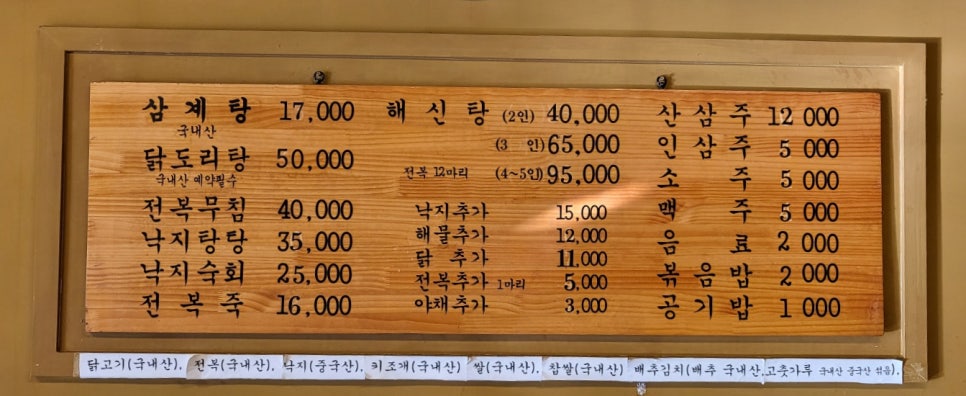 삼계탕 17,000
국내산
닭도리탕 50,000
국내산 예약필수
전복무침 40,000
낙지탕탕 35,000
낙지숙회 25,000
전복죽 16,000
해신탕 (2인) 40,000
(3 인) 65,000
전복 12마리 (4~5인) 95,000
낙지추가 15,000
해물추가 12,000
닭 추가 11,000
전복추가 1마리 5,000
야채추가 3,000
산삼주 12 000
인삼주 5 000
소주 5 000
맥주 5 000
음료 2 000
볶음밥 2 000
공기밥 1 000
닭고기(국내산). 전복(국내산). 낙지(중국산). 키조개(국내산) 쌀(국내산). 찹쌀(국내산) 배추김치(배추 국내산.고춧가루 국내산 중국산 섞음).